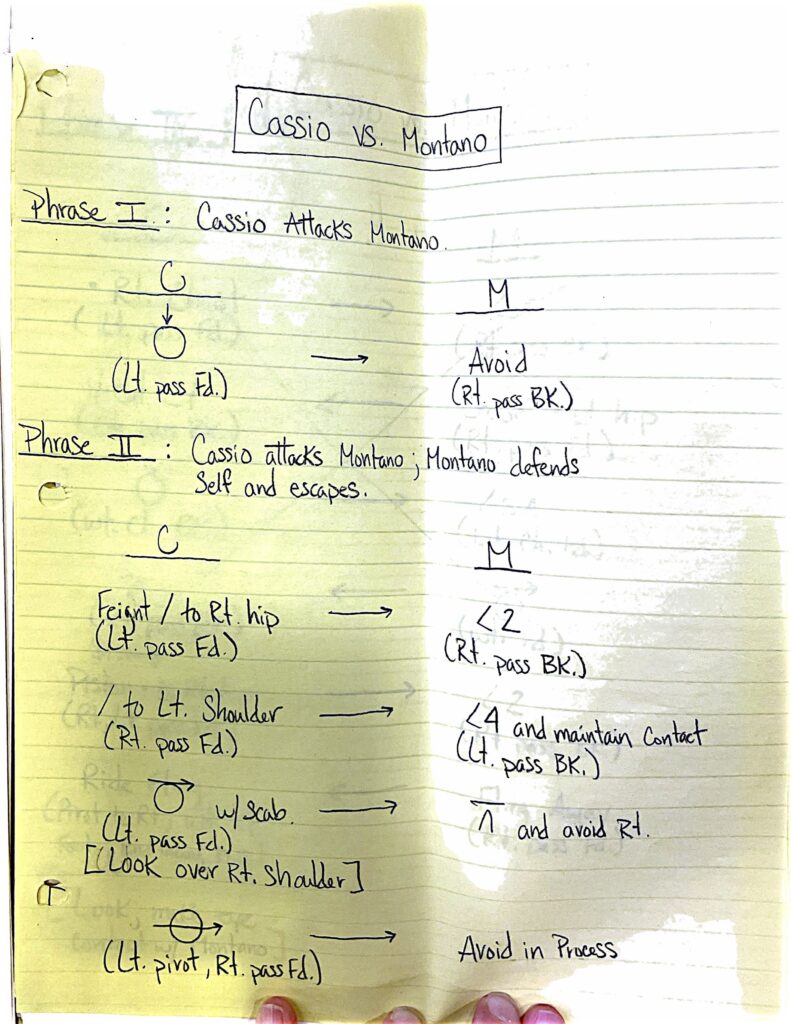 Cassio vs. Montano
Phrase I : Cassio Attacks Montano.
C M
→ Avoid
(Lt. pass Fd.) (Rt. pass BK.)
Phrase II : Cassio attacks Montano; Montano defends
Self and escapes.
C M
Feignt / to Rt. hip → <2
(Lt. pass Fd.) (Rt. pass BK.)
/ to Lt. Shoulder → <4 and maintain Contact
(Rt. pass Fd.) (Lt. pass BK.)
w/ Scab. → and avoid Rt.
(Lt. pass Fd.)
[Look over Rt. Shoulder]
→ Avoid in Process
(Lt. pivot, Rt. pass Fd.)